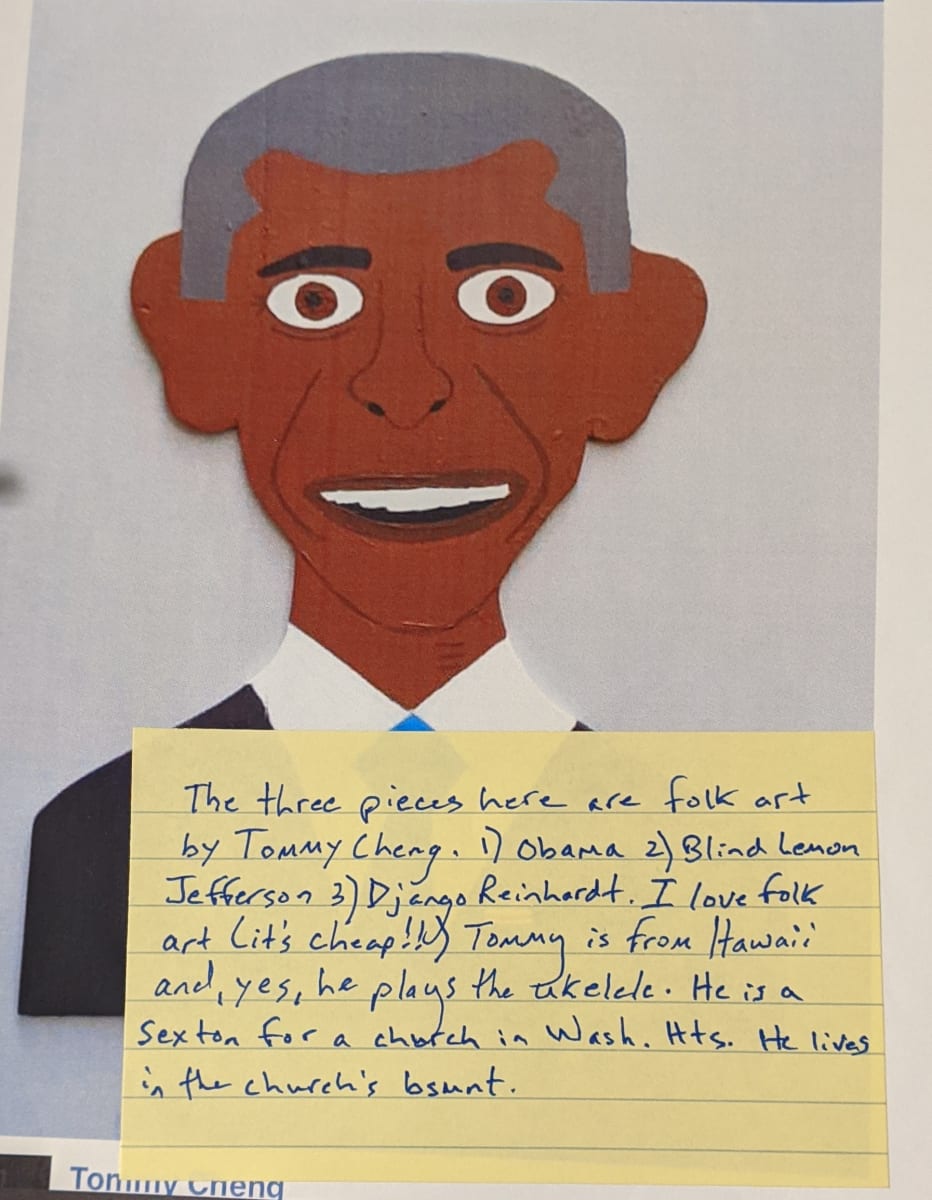 The three pieces here are folk art
by Tommy Cheng. 1) Obama 2) Blind Lemon
Jefferson 3) Django Reinhardt. I love folk
art (it's cheap!!!) Tommy is from Hawaii
and, yes, he plays the ukelele. He is a
sexton for a church in Wash. Hts. He lives
in the church's bsmnt.
Tommy Cheng